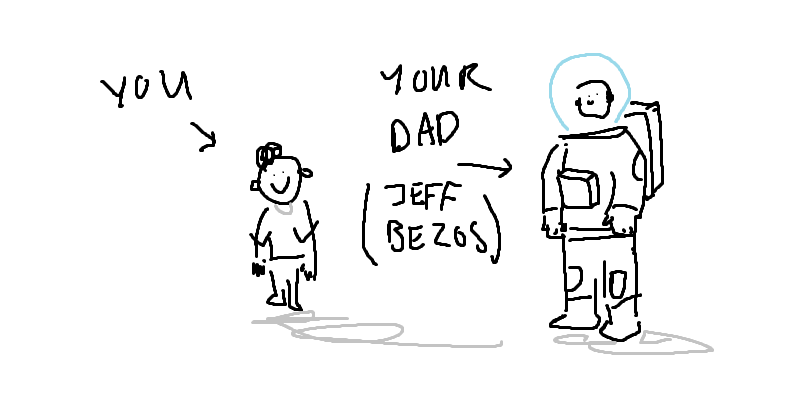 YOU
YOUR
DAD
(JEFF
BEZOS)